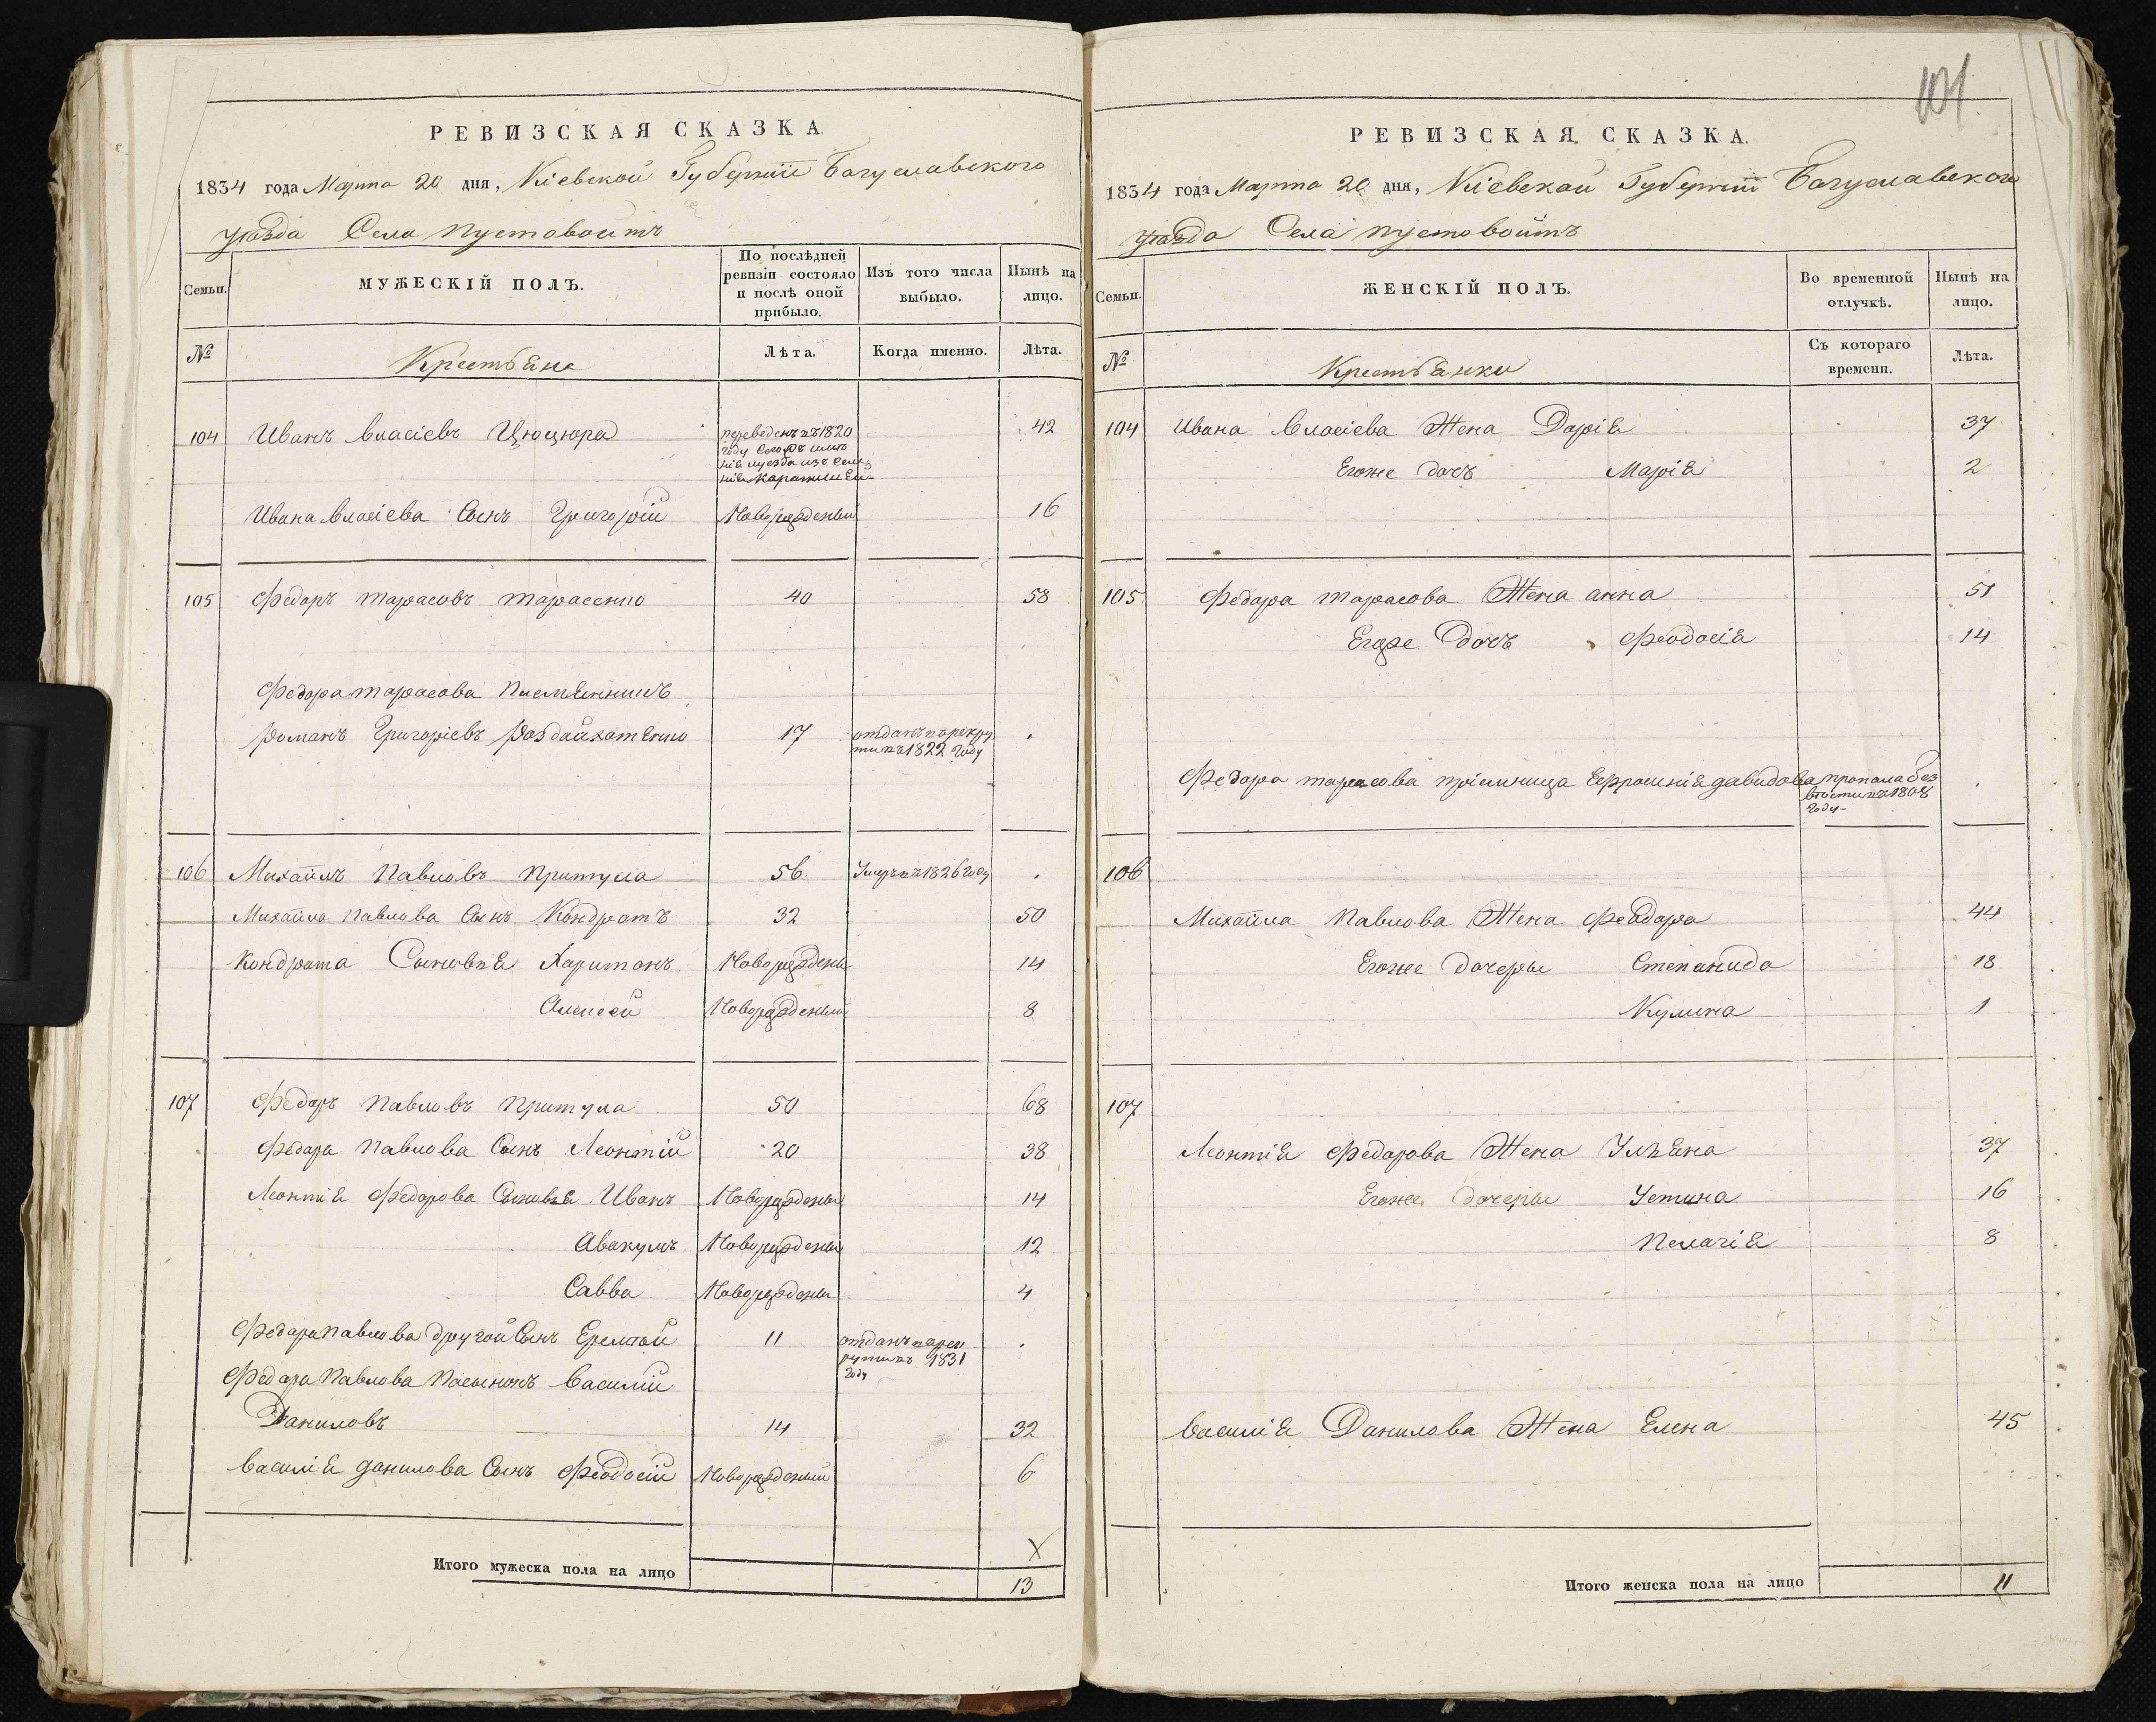 РЕВИЗСКАЯ СКАЗКА.
1834 года Марта 20 дня, Кіевской Губерніи Богуславского
уѣзда Села Пустовойтъ
Семьи.
МУЖЕСКІЙ ПОЛЪ.
По послѣдней ревизіи состояло и послѣ оной прибыло.
Изъ того числа выбыло.
Нынѣ на лицо.
№
Крестьяне
Лѣта.
Когда именно.
Лѣта.
104 Иванъ Власіевъ Цюцюра 42
переведенъ въ 1820
году
уезда изъ
Ивана Власіева Сынъ Григорій Новорожденый 16
105 Федоръ Тарасовъ Тарасенко 40 58
Федора Тарасова Племенникъ
Романъ Григоріевъ 17 отданъ в рекру
ти въ 1822 году
106 Михайлъ Павловъ Притула 56 Умеръ въ 1826 году
Михайла Павлова Сынъ Кондратъ 32 50
Кондрата Сыновья Харитонъ Новорождены 14
Алексей Новорожденый 8
107 Федоръ Павловъ Притула 50 68
Федора Павлова Сынъ Леонтій 20 38
Леонтія Федорова Сыновья Иванъ Новорождены 14
Авакумъ Новорождены 12
Савва Новорождены 4
Федора Павлова другой Сынъ Еремѣй 11 отданъ в рек
рути въ 1831
году
Федора Павлова Пасынокъ Василій
Даниловъ 14 32
Василія Данилова Сынъ Феодосій Новорожденый 6
X
Итого мужеска пола на лицо 13
101
РЕВИЗСКАЯ СКАЗКА.
1834 года Марта 20 дня, Кіевской Губерніи Богуславского
уѣзда Села Пустовойтъ
Семьи.
ЖЕНСКІЙ ПОЛЪ.
Во временной отлучкѣ.
Нынѣ на лицо.
№
Крестьянки
Съ котораго времени.
Лѣта.
104 Ивана Власіева Жена Дарія 37
Егоже дочъ Марія 2
105 Федора Тарасова Жена Анна 51
Егоже Дочъ Феодосія 14
Федора Тарасова пріемница Ефросинія Давидова пропала без
вѣсти въ 1808
году
106
Михайла Павлова Жена Феодора 44
Егоже дочеры Степанида 18
Кулина 1
107
Леонтія Федорова Жена Ульяна 37
Егоже дочеры Устина 16
Пелагія 8
Василія Данилова Жена Елена 45
Итого женска пола на лицо 11